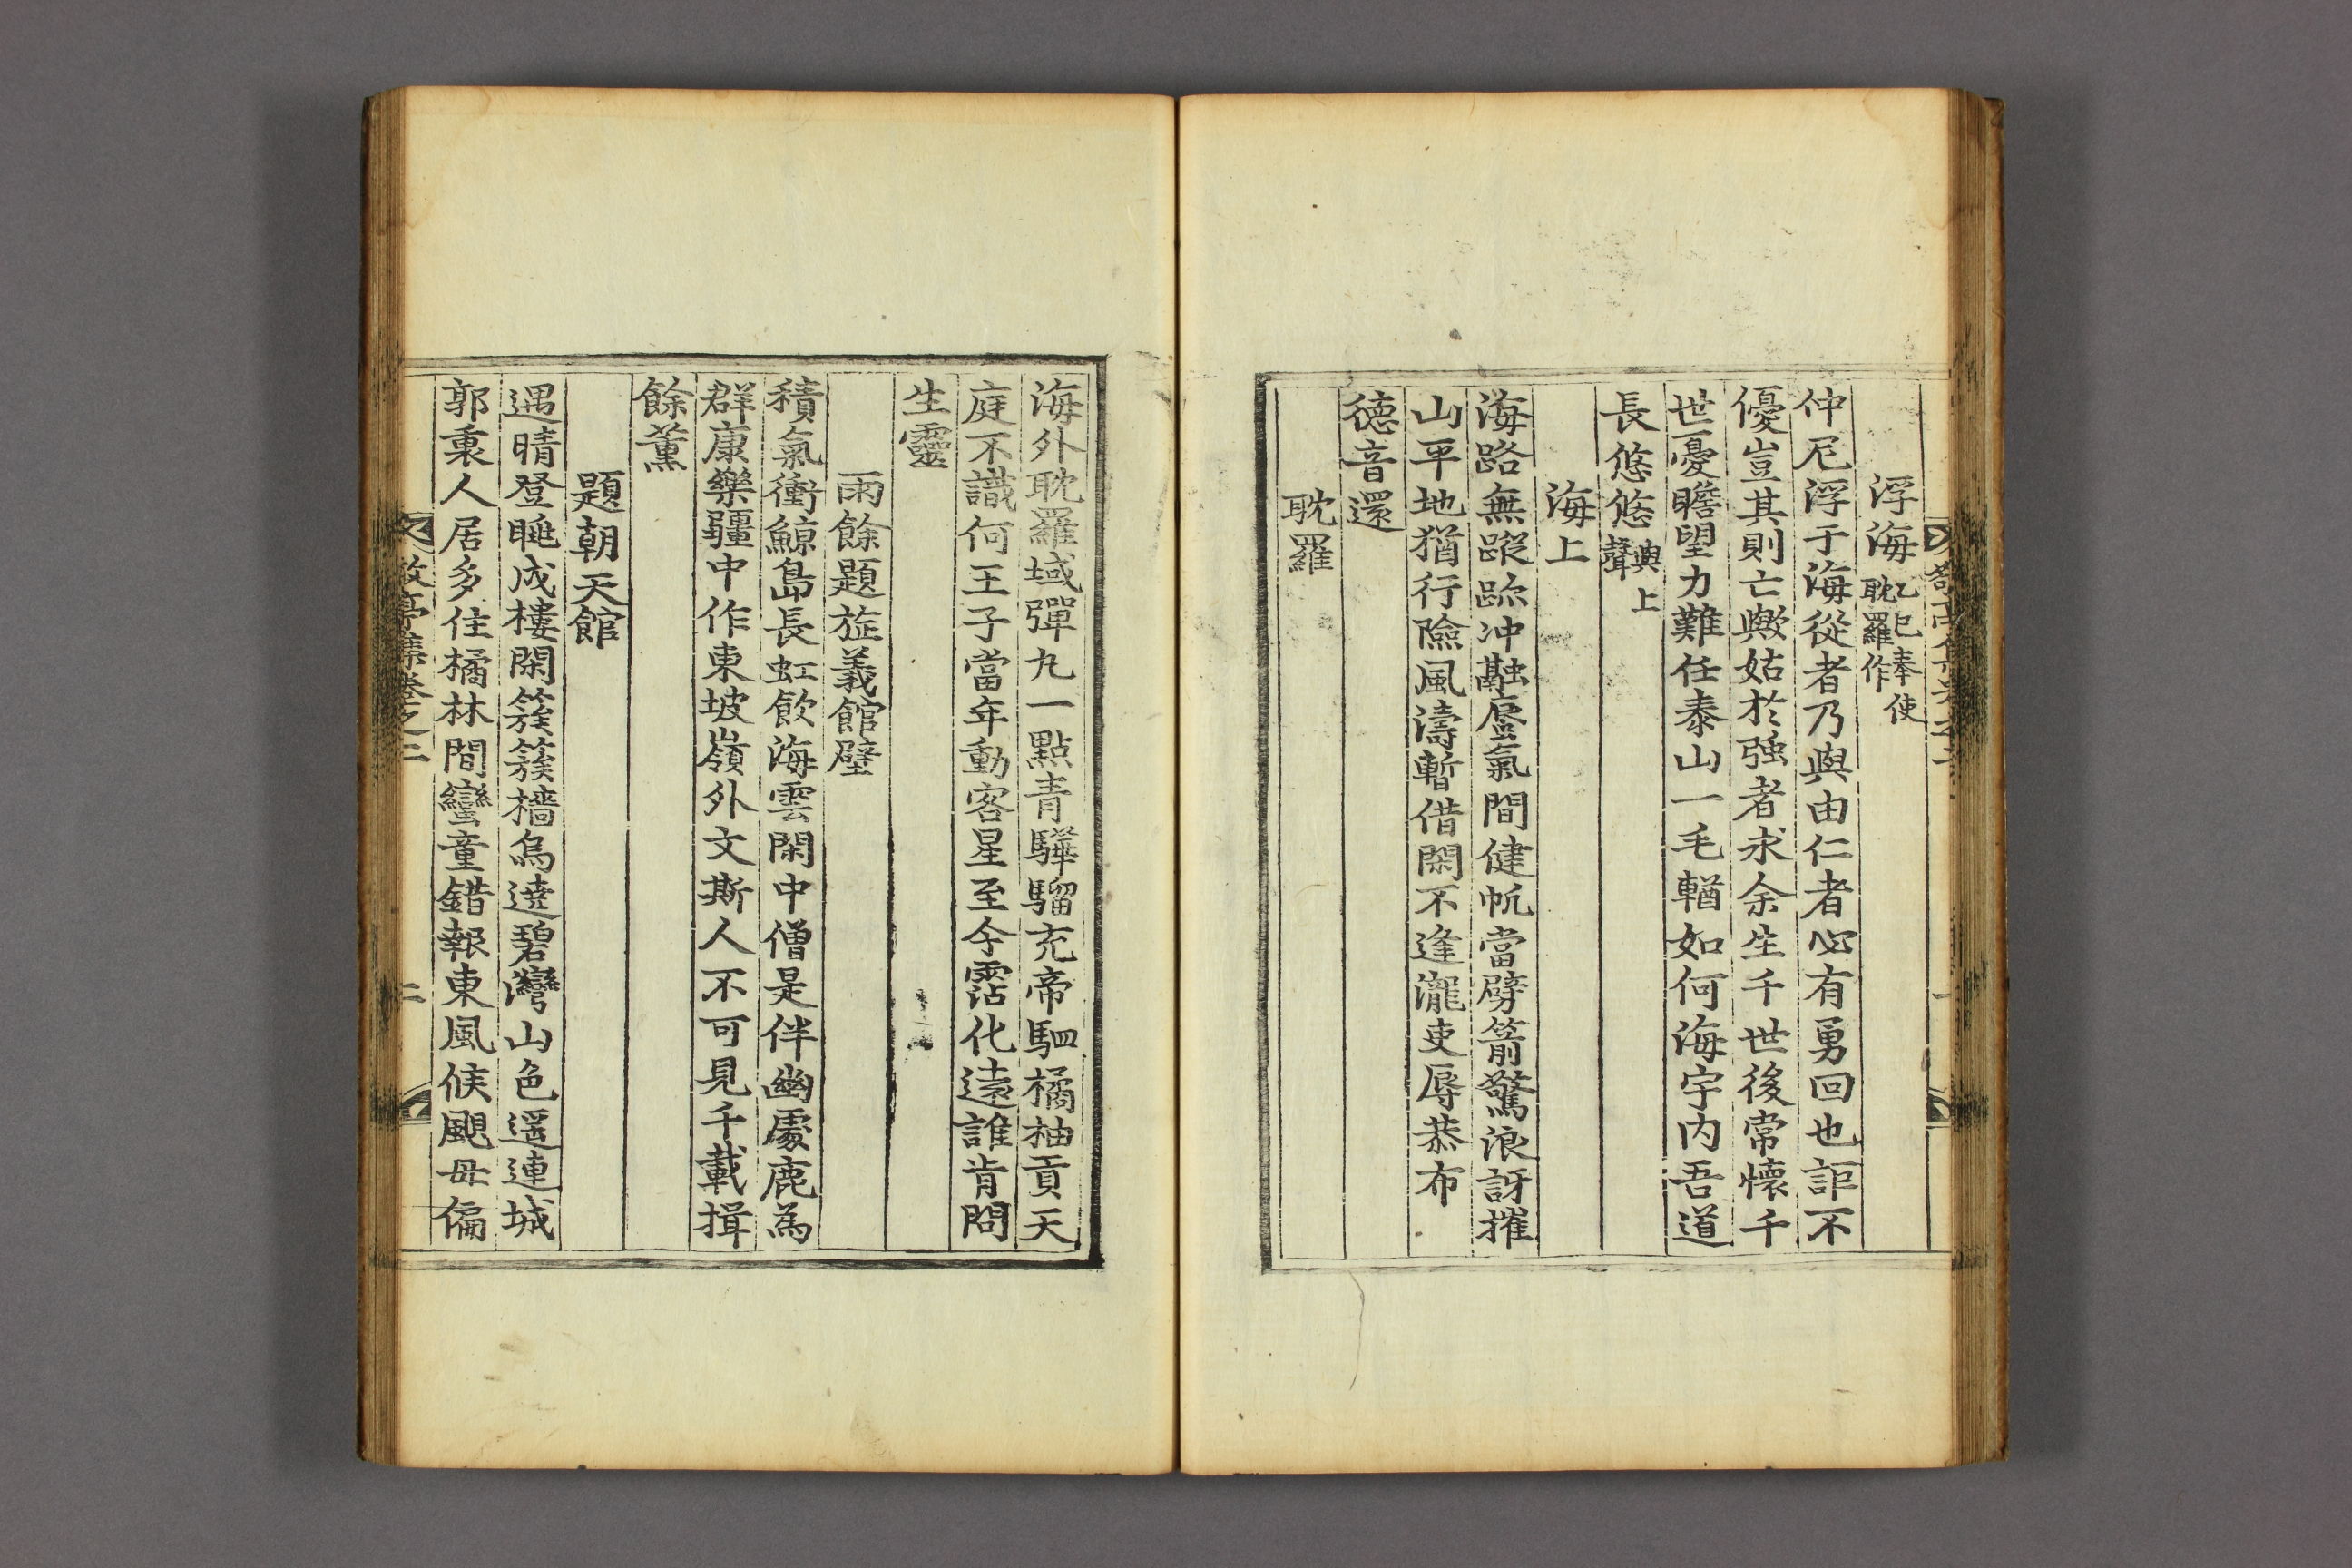 浮海乙巳奉使
耽羅作
仲尼浮于海從者乃與由仁者必有勇回也詎不
優豈其則亡歟姑於強者求余生千世後常懷千
世憂瞻望力難任泰山一毛輶如何海宇内吾道
長悠悠與上
聲
海上
海路無蹤跡冲融蜃氣間健帆當劈箭驚浪訝摧
山平地猶行險風濤暫借閑不逢瀧吏辱恭布
德音還
耽羅
海外耽羅域彈丸一點青驊騮充帝駟橘柚貢天
庭不識何王子當年動客星至今霑化遠誰肯問
生靈
雨餘題㫌義館壁
積氣衝鯨島長虹飮海雲閑中僧是伴幽處鹿為
群康樂疆中作東坡嶺外文斯人不可見千載揖
餘薰
題朝天館
遇晴登眺成樓閑簇簇檣烏遶碧灣山色遥連城
郭裏人居多住橘林間蠻童錯報東風候颶母偏
亭集卷之二
二